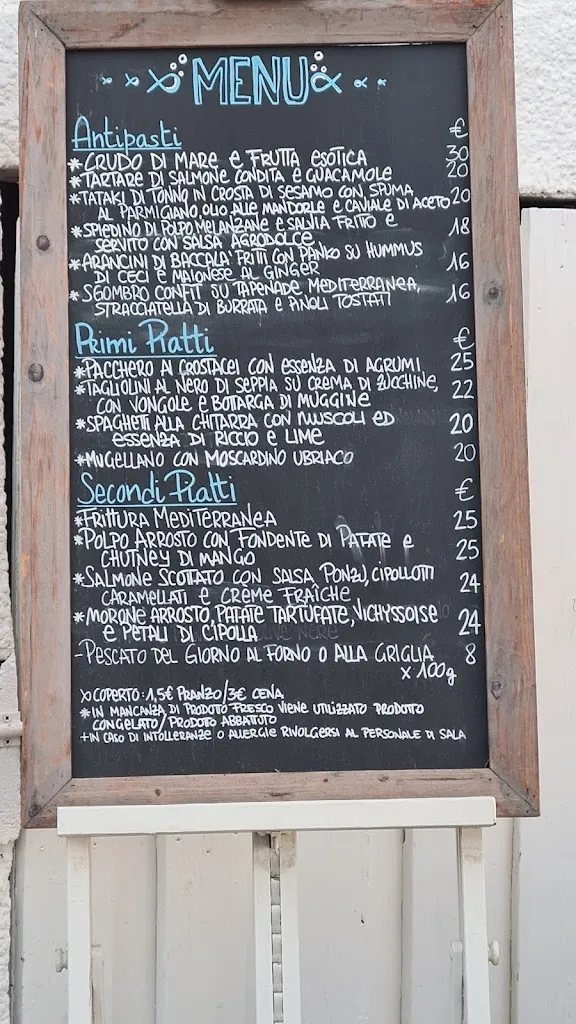 MENU
Antipasti €
*CRUDO DI MARE e FRUTTA ESOTICA 30
*TARTARE DI SALMONE CONDITA e GUACAMOLE 20
*TATAKI DI TONNO IN CROSTA DI SESAMO CON SPUMA
AL PARMIGIANO, OLIO ALLE MANDORLE e CAVIALE DI ACETO 20
*SPIEDINO DI POLPO, MELANZANE e SALVIA FRITTO e
SERVITO CON SALSA AGRODOLCE 18
*ARANCINI DI BACCALA' FRITTI CON PANKO SU HUMMUS
DI CECI e MAIONESE AL GINGER 16
*SGOMBRO CONFIT SU TAPENADE MEDITERRANEA,
STRACCIATELLA DI BURRATA e PINOLI TOSTATI 16
Primi Piatti €
*PACCHERO AI CROSTACEI CON ESSENZA DI AGRUMI 25
*TAGLIOLINI AL NERO DI SEPPIA SU CREMA DI ZUCCHINE,
CON VONGOLE e BOTTARGA DI MUGGINE 22
*SPAGHETTI ALLA CHITARRA CON MUSCOLI ED
ESSENZA DI RICCIO e LIME 20
*MUGELLANO CON MOSCARDINO UBRIACO 20
Secondi Piatti €
*FRITTURA MEDITERRANEA 25
*POLPO ARROSTO CON FONDENTE DI PATATE e
CHUTNEY DI MANGO 25
*SALMONE SCOTTATO CON SALSA PONZU, CIPOLLOTTI
CARAMELLATI e CRÈME FRAÎCHE 24
*MORONE ARROSTO, PATATE TARTUFATE, VICHYSSOISE
e PETALI DI CIPOLLA 24
-PESCATO DEL GIORNO AL FORNO O ALLA GRIGLIA 8
x 100g
x COPERTO: 1,5€ PRANZO/3€ CENA
*IN MANCANZA DI PRODOTTO FRESCO VIENE UTILIZZATO PRODOTTO
CONGELATO/PRODOTTO ABBATTUTO
+IN CASO DI INTOLLERANZE O ALLERGIE RIVOLGERSI AL PERSONALE DI SALA